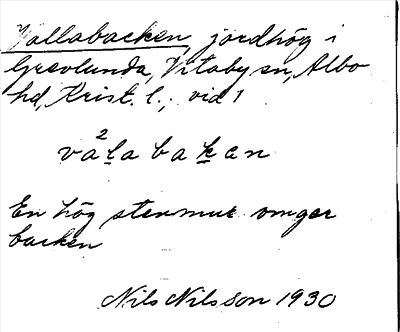 Vallabacken, jordhög i
Grevlunda, Vitaby sn, Albo
hd, Krist. l.; vid 1
va²l̲abak̲an
En hög stenmur omger
backen
Nils Nilsson 1930